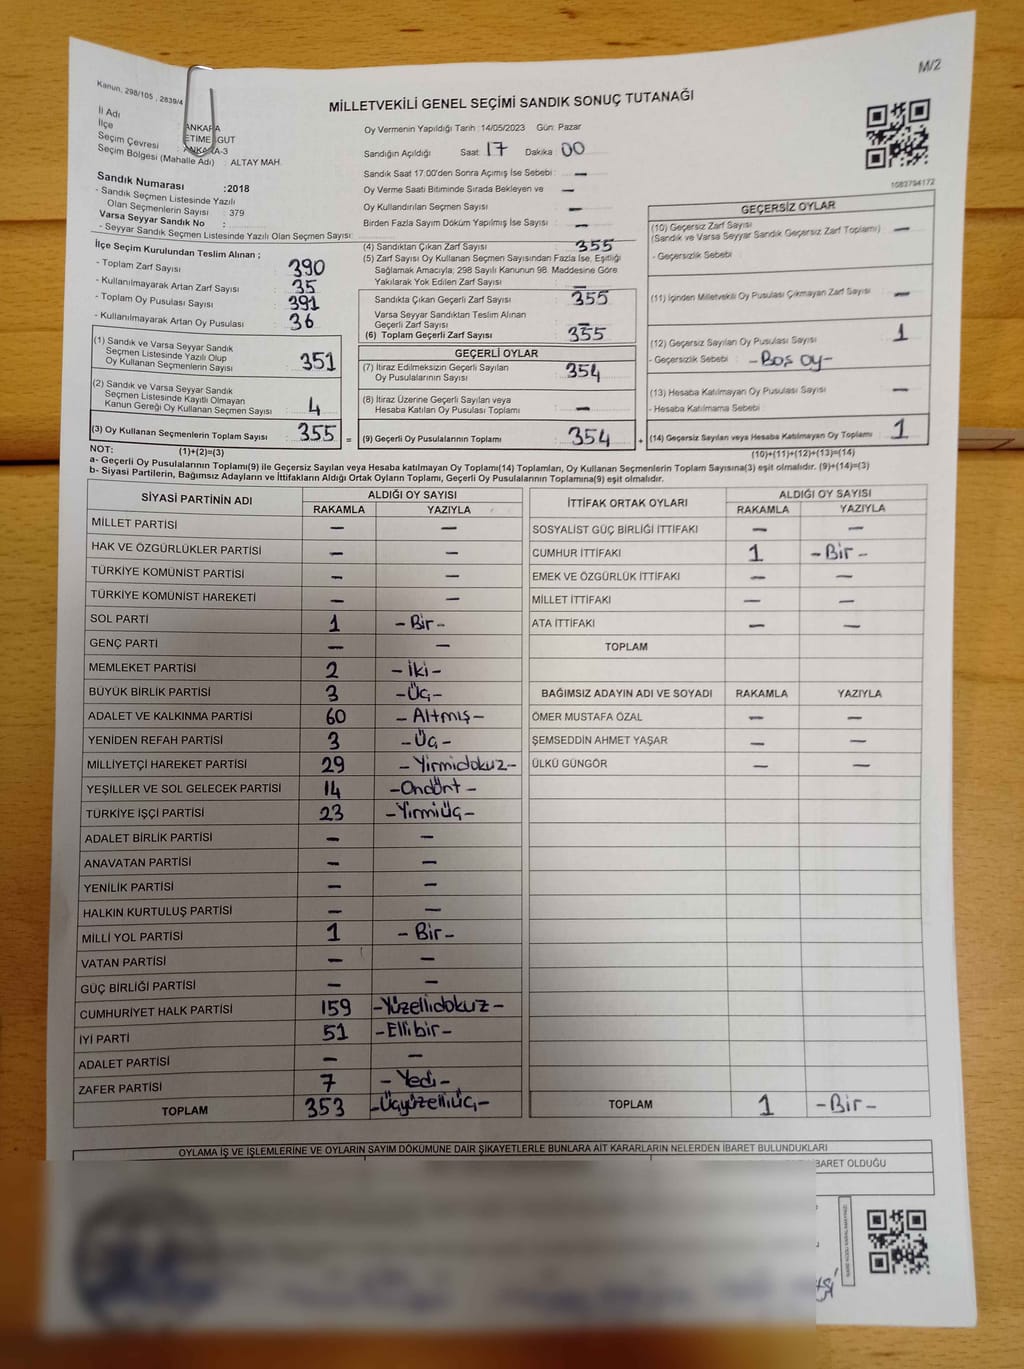 M/2
Kanun, 298/105 , 2839/4
MİLLETVEKİLİ GENEL SEÇİMİ SANDIK SONUÇ TUTANAĞI
İl Adı ANKARA
İlçe
Seçim Çevresi : ANKARA-3
Seçim Bölgesi (Mahalle Adı) : ALTAY MAH.
Sandık Numarası :2018
- Sandık Seçmen Listesinde Yazılı
Olan Seçmenlerin Sayısı : 379
Varsa Seyyar Sandık No :
- Seyyar Sandık Seçmen Listesinde Yazılı Olan Seçmen Sayısı:
Oy Vermenin Yapıldığı Tarih :14/05/2023 Gün: Pazar
Sandığın Açıldığı Saat 17 Dakika 00
Sandık Saat 17.00'den Sonra Açımış İse Sebebi : –
Oy Verme Saati Bitiminde Sırada Bekleyen ve –
Oy Kullandırılan Seçmen Sayısı –
Birden Fazla Sayım Döküm Yapılmış İse Sayısı –
1082794172
İlçe Seçim Kurulundan Teslim Alınan ;
- Toplam Zarf Sayısı 390
- Kullanılmayarak Artan Zarf Sayısı 35
- Toplam Oy Pusulası Sayısı 391
- Kullanılmayarak Artan Oy Pusulası 36
(1) Sandık ve Varsa Seyyar Sandık
Seçmen Listesinde Yazılı Olup
Oy Kullanan Seçmenlerin Sayısı 351
(2) Sandık ve Varsa Seyyar Sandık
Seçmen Listesinde Kayıtlı Olmayan
Kanun Gereği Oy Kullanan Seçmen Sayısı 4
(3) Oy Kullanan Seçmenlerin Toplam Sayısı 355 =
(4) Sandıktan Çıkan Zarf Sayısı 355
(5) Zarf Sayısı Oy Kullanan Seçmen Sayısından Fazla İse, Eşitliği
Sağlamak Amacıyla; 298 Sayılı Kanunun 98. Maddesine Göre
Yakılarak Yok Edilen Zarf Sayısı –
Sandıkta Çıkan Geçerli Zarf Sayısı 355
Varsa Seyyar Sandıktan Teslim Alınan
Geçerli Zarf Sayısı –
(6) Toplam Geçerli Zarf Sayısı 355
GEÇERLİ OYLAR
(7) İtiraz Edilmeksizin Geçerli Sayılan
Oy Pusulalarının Sayısı 354
(8) İtiraz Üzerine Geçerli Sayılan veya
Hesaba Katılan Oy Pusulası Toplamı –
(9) Geçerli Oy Pusulalarının Toplamı 354 +
GEÇERSİZ OYLAR
(10) Geçersiz Zarf Sayısı
(Sandık ve Varsa Seyyar Sandık Geçersiz Zarf Toplamı) –
- Geçersizlik Sebebi
(11) İçinden Milletvekili Oy Pusulası Çıkmayan Zarf Sayısı –
(12) Geçersiz Sayılan Oy Pusulası Sayısı 1
- Geçersizlik Sebebi : -Boş oy-
(13) Hesaba Katılmayan Oy Pusulası Sayısı –
- Hesaba Katılmama Sebebi
(14) Geçersiz Sayılan veya Hesaba Katılmayan Oy Toplamı 1
NOT: (1)+(2)=(3) (10)+(11)+(12)+(13)=(14)
a- Geçerli Oy Pusulalarının Toplamı(9) ile Geçersiz Sayılan veya Hesaba katılmayan Oy Toplamı(14) Toplamları, Oy Kullanan Seçmenlerin Toplam Sayısına(3) eşit olmalıdır. (9)+(14)=(3)
b- Siyasi Partilerin, Bağımsız Adayların ve İttifakların Aldığı Ortak Oyların Toplamı, Geçerli Oy Pusulalarının Toplamına(9) eşit olmalıdır.
SİYASİ PARTİNİN ADI ALDIĞI OY SAYISI
RAKAMLA YAZIYLA
MİLLET PARTİSİ – –
HAK VE ÖZGÜRLÜKLER PARTİSİ – –
TÜRKİYE KOMÜNİST PARTİSİ – –
TÜRKİYE KOMÜNİST HAREKETİ – –
SOL PARTİ 1 -Bir-
GENÇ PARTİ – –
MEMLEKET PARTİSİ 2 -İki-
BÜYÜK BİRLİK PARTİSİ 3 -Üç-
ADALET VE KALKINMA PARTİSİ 60 -Altmış-
YENİDEN REFAH PARTİSİ 3 -Üç-
MİLLİYETÇİ HAREKET PARTİSİ 29 -Yirmidokuz-
YEŞİLLER VE SOL GELECEK PARTİSİ 14 -Ondört-
TÜRKİYE İŞÇİ PARTİSİ 23 -Yirmiüç-
ADALET BİRLİK PARTİSİ – –
ANAVATAN PARTİSİ – –
YENİLİK PARTİSİ – –
HALKIN KURTULUŞ PARTİSİ – –
MİLLİ YOL PARTİSİ 1 -Bir-
VATAN PARTİSİ – –
GÜÇ BİRLİĞİ PARTİSİ – –
CUMHURİYET HALK PARTİSİ 159 -Yüzellidokuz-
İYİ PARTİ 51 -Ellibir-
ADALET PARTİSİ – –
ZAFER PARTİSİ 7 -Yedi-
TOPLAM 353 -Üçyüzelliüç-
İTTİFAK ORTAK OYLARI ALDIĞI OY SAYISI
RAKAMLA YAZIYLA
SOSYALİST GÜÇ BİRLİĞİ İTTİFAKI – –
CUMHUR İTTİFAKI 1 -Bir-
EMEK VE ÖZGÜRLÜK İTTİFAKI – –
MİLLET İTTİFAKI – –
ATA İTTİFAKI – –
TOPLAM
BAĞIMSIZ ADAYIN ADI VE SOYADI RAKAMLA YAZIYLA
ÖMER MUSTAFA ÖZAL – –
ŞEMSEDDİN AHMET YAŞAR – –
ÜLKÜ GÜNGÖR – –
TOPLAM 1 -Bir-
OYLAMA İŞ VE İŞLEMLERİNE VE OYLARIN SAYIM DÖKÜMÜNE DAİR ŞİKAYETLERLE BUNLARA AİT KARARLARIN NELERDEN İBARET BULUNDUKLARI
BARET OLDUĞU